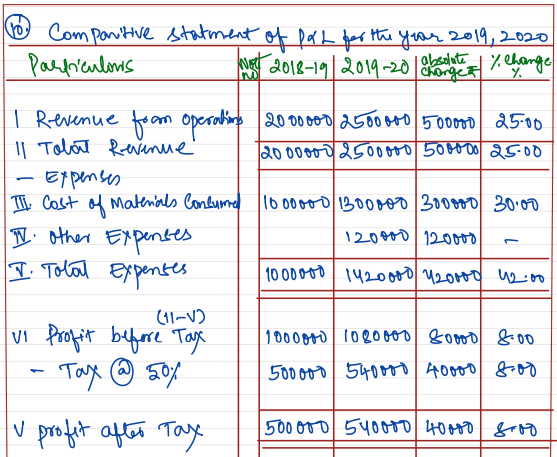 10. Comparitive statment of P&L for the year 2019, 2020
Particulars Not no 2018-19 2019-20 absolute change ₹ % Change %
I Revenue from operations 2000000 2500000 500000 25.00
II Total Revenue 2000000 2500000 500000 25.00
- Expenses
III. Cost of Materials Consumed 1000000 1300000 300000 30.00
IV. Other Expenses 120000 120000 -
V. Total Expenses 1000000 1420000 420000 42.00
(II-V)
VI Profit before Tax 1000000 1080000 80000 8.00
- Tax @ 50% 500000 540000 40000 8.00
V profit after Tax 500000 540000 40000 8.00